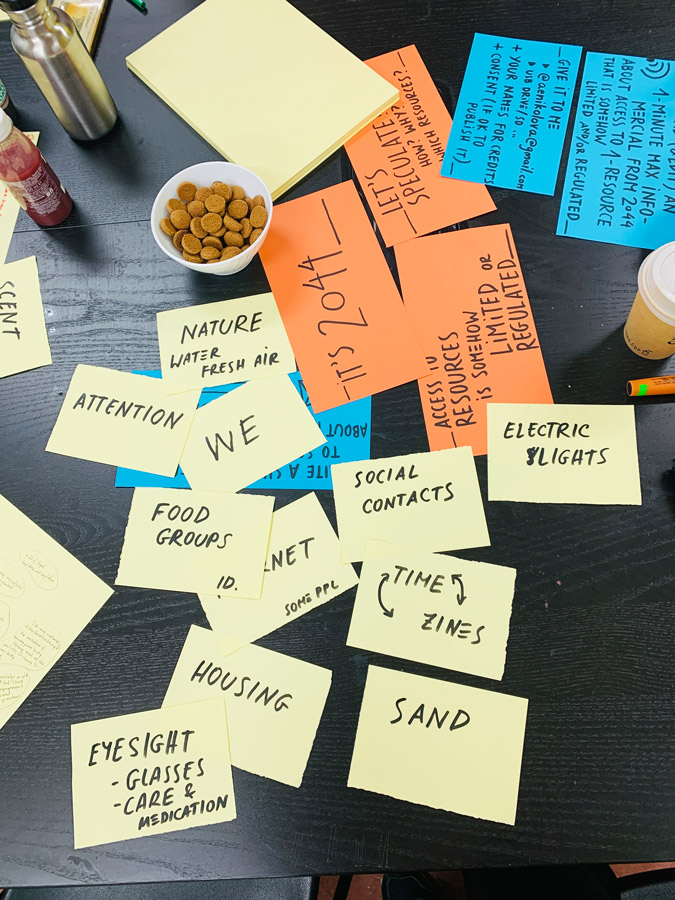 GIVE IT TO ME
@aenikolova@gmail.com
USB DRIVE/SD...
+ YOUR NAMES FOR CREDITS
+ CONSENT (IF OK TO
PUBLISH IT)
1-MINUTE MAX INFO-
MERCIAL FROM 2044
ABOUT ACCESS TO 1-RESOURCE
THAT IS SOMEHOW
LIMITED AND/OR REGULATED
LET'S
SPECULATE:
HOW? WHY?
WHICH RESOURCES?
IT'S 2044
ACCESS TO
RESOURCES
IS SOMEHOW
LIMITED OR
REGULATED
SCENT
NATURE
WATER
FRESH AIR
ATTENTION
WE
ABOUT
TO
ELECTRIC
LIGHTS
SOCIAL
CONTACTS
FOOD
GROUPS
ID.
NET
SOME PPL
TIME
ZINES
HOUSING
SAND
EYESIGHT
- GLASSES
- CARE &
MEDICATION